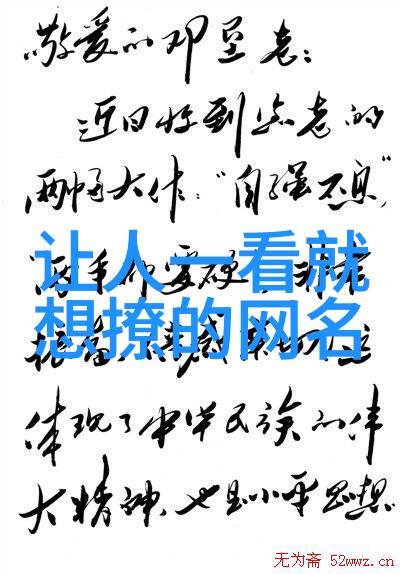 敬爱的邓垦老：
近日收到您老的
两幅大作："自强不息"
让人一看就
"两手都要硬
想撩的网名
振奋
体现了中华民族的伟
大精神，也是小平思想
无为斋 52wwz.cn